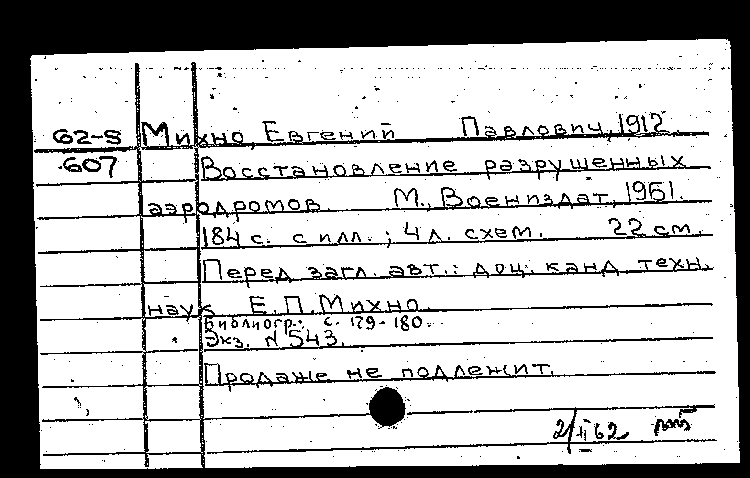 62-5 Михно, Евгений Павлович, 1912
607 Восстановление разрушенных
аэродромов. М., Воениздат, 1961.
184 с. с илл.; 4 л. схем. 22 см.
Перед загл. авт.: доц. канд техн.
наук Е.П.Михно.
Библиогр.: с. 179-180.
Экз. N 543.
Продаже не подлежит.
2/II 62